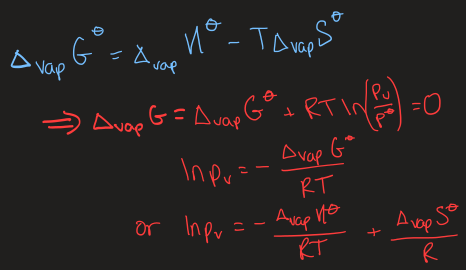 Δ_vap G^⊖ = Δ_vap H^⊖ - TΔ_vap S^⊖
⇒ Δ_vap G = Δ_vap G^⊖ + RT ln(p_v/p^⊖) = 0
ln p_v = - Δ_vap G^⊖/RT
or ln p_v = - Δ_vap H^⊖/RT + Δ_vap S^⊖/R